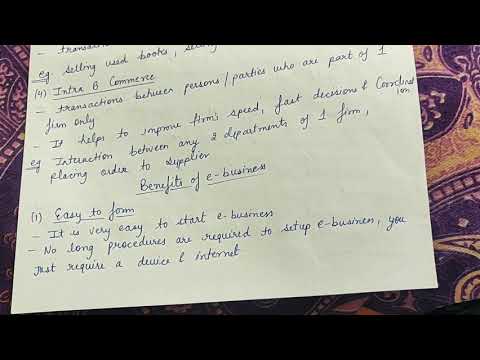 - transaction
eg selling used books, selling
(4) Intra B Commerce
- transactions between persons/parties who are part of 1
firm only
- It helps to improve firm's speed, fast decisions & Coordination
eg Interaction between any 2 departments of 1 firm,
placing order to supplier
Benefits of e-business
(1) Easy to form
- It is very easy to start e-business
- No long procedures are required to setup e-business, you
just require a device & internet